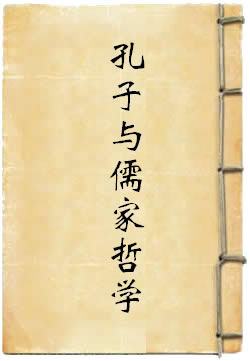 孔子与儒家哲学